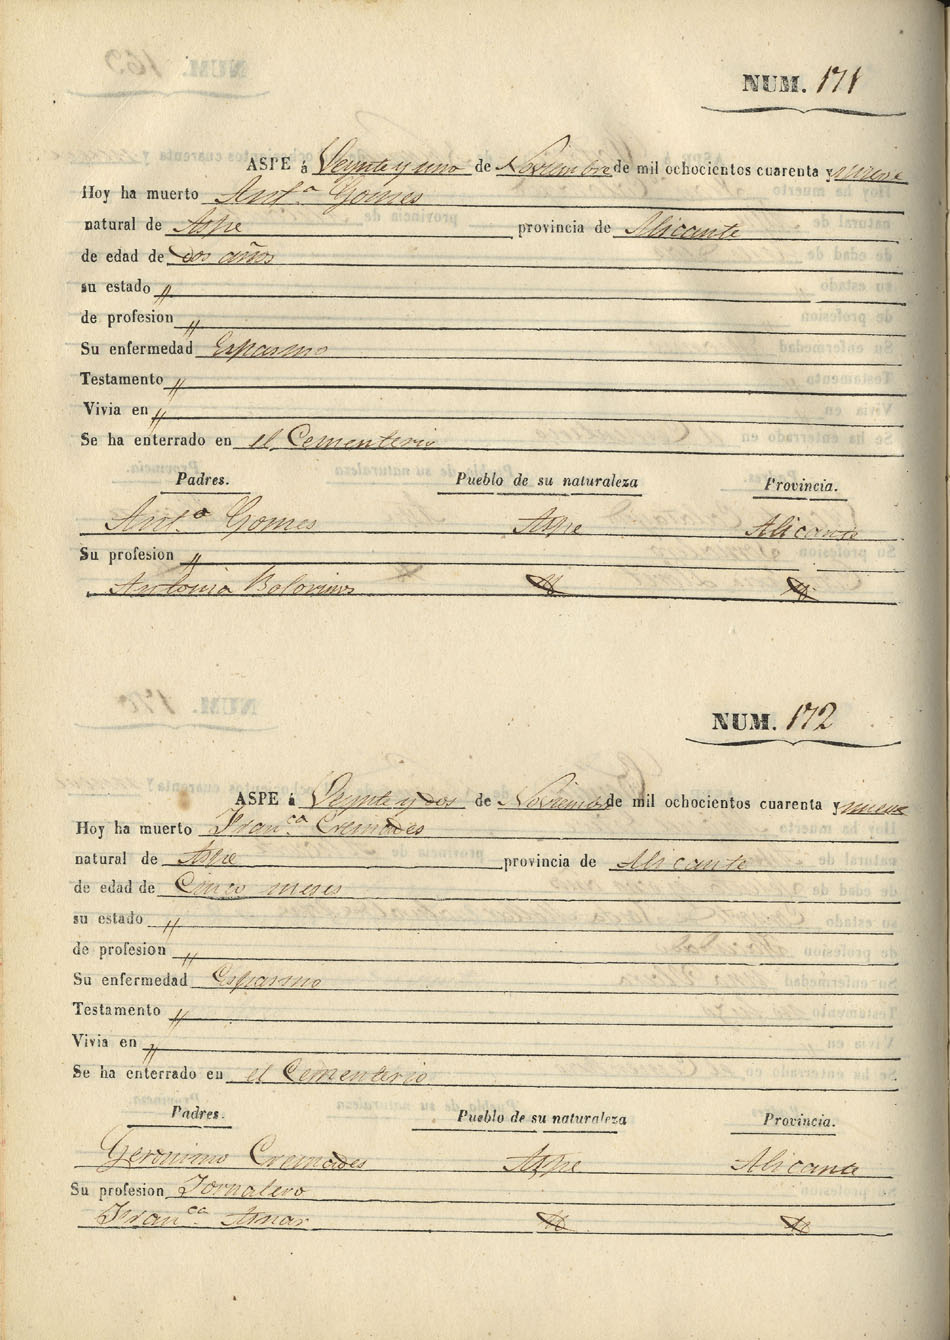 NUM. 171
ASPE á Veynte y uno de Noviembre de mil ochocientos cuarenta y nueve
Hoy ha muerto Ant.º Gomes
natural de Aspe provincia de Alicante
de edad de dos años
su estado "
de profesion "
Su enfermedad Espasmo
Testamento "
Vivia en "
Se ha enterrado en el Cementerio
Padres. Pueblo de su naturaleza Provincia.
Ant.º Gomes Aspe Alicante
Su profesion "
Antonia
NUM. 172
ASPE á Veynte y dos de de mil ochocientos cuarenta y nueve
Hoy ha muerto Fran.ca Cremades
natural de Aspe provincia de Alicante
de edad de Cinco meses
su estado "
de profesion "
Su enfermedad Espasmo
Testamento "
Vivia en "
Se ha enterrado en el Cementerio
Padres. Pueblo de su naturaleza Provincia.
Geronimo Cremades Aspe Alicante
Su profesion Jornalero
Fran.ca